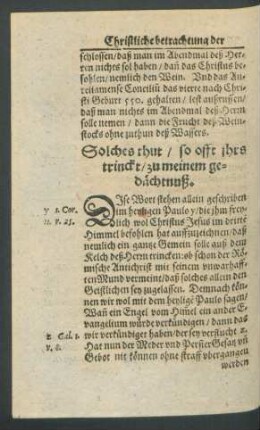 Christliche betrachtung der
schlossen/daß man im Abendmal deß Her-
ren nichts sol haben/ dañ das Christus be-
fohlen/ nemlich den Wein. Vnd das Au-
relianense Conciliũ das vierte nach Chri-
sti Geburt 550. gehalten/ lest außruffen/
daß man nichts im Abendmal deß Herrn
solle nemen/ dann die Frucht deß Wein-
stocks ohne zuthun deß Wassers.
Solches thut/ so offt jhrs
trinckt/ zu meinem ge-
dächtnuß.
y 1. Cor.
11. v. 25.
DIse Wort stehen allein geschriben
im heyligen Paulo y/ die jhm frey-
lich wol Christus Jesus im dritte
Himmel befohlen hat auffzuzeichnen/ daß
nemlich ein gantze Gemein solle auß dem
Kelch deß Herrn trincken: ob schon der Rö-
mische Antichrist mit seinem vnwarhaff-
ten Mund vermeint/ daß solches allein den
Geistlichen sey zugelassen. Demnach könte
ten wir wol mit dem heylige Paulo sagen/
Wañ ein Engel vom Himel ein ander E-
vangelium würde verkündigen/ dann das
z Gal. 1.
v. 8.
wir verkündiget haben/ der sey verflucht z.
Hat nun der Meder vnd Perster Gesatz vñ
Gebot nit können ohne straff vbergangen
werden